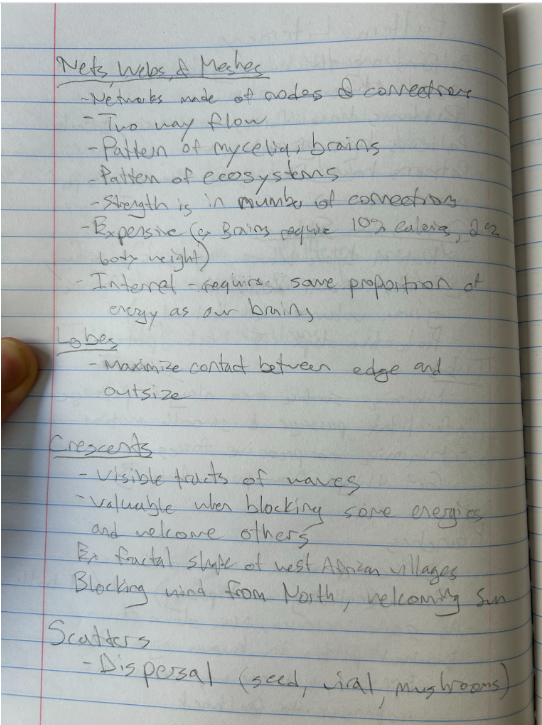 Nets, Webs, & Meshes
- Networks made of nodes & connections
- Two way flow
- Pattern of mycelia, brains
- Pattern of ecosystems
- Strength is in number of connections
- Expensive (ex Brains require 10% calories, 2%
body weight)
- Internet - requires same proportion of
energy as our brains
Lobes
- Maximize contact between edge and
outsize
Crescents
- Visible of waves
- Valuable when blocking some energies
and welcome others
Ex fractal shape of west African villages
Blocking wind from North, welcoming sun
Scatters
- Dispersal (seed, viral, mushrooms)